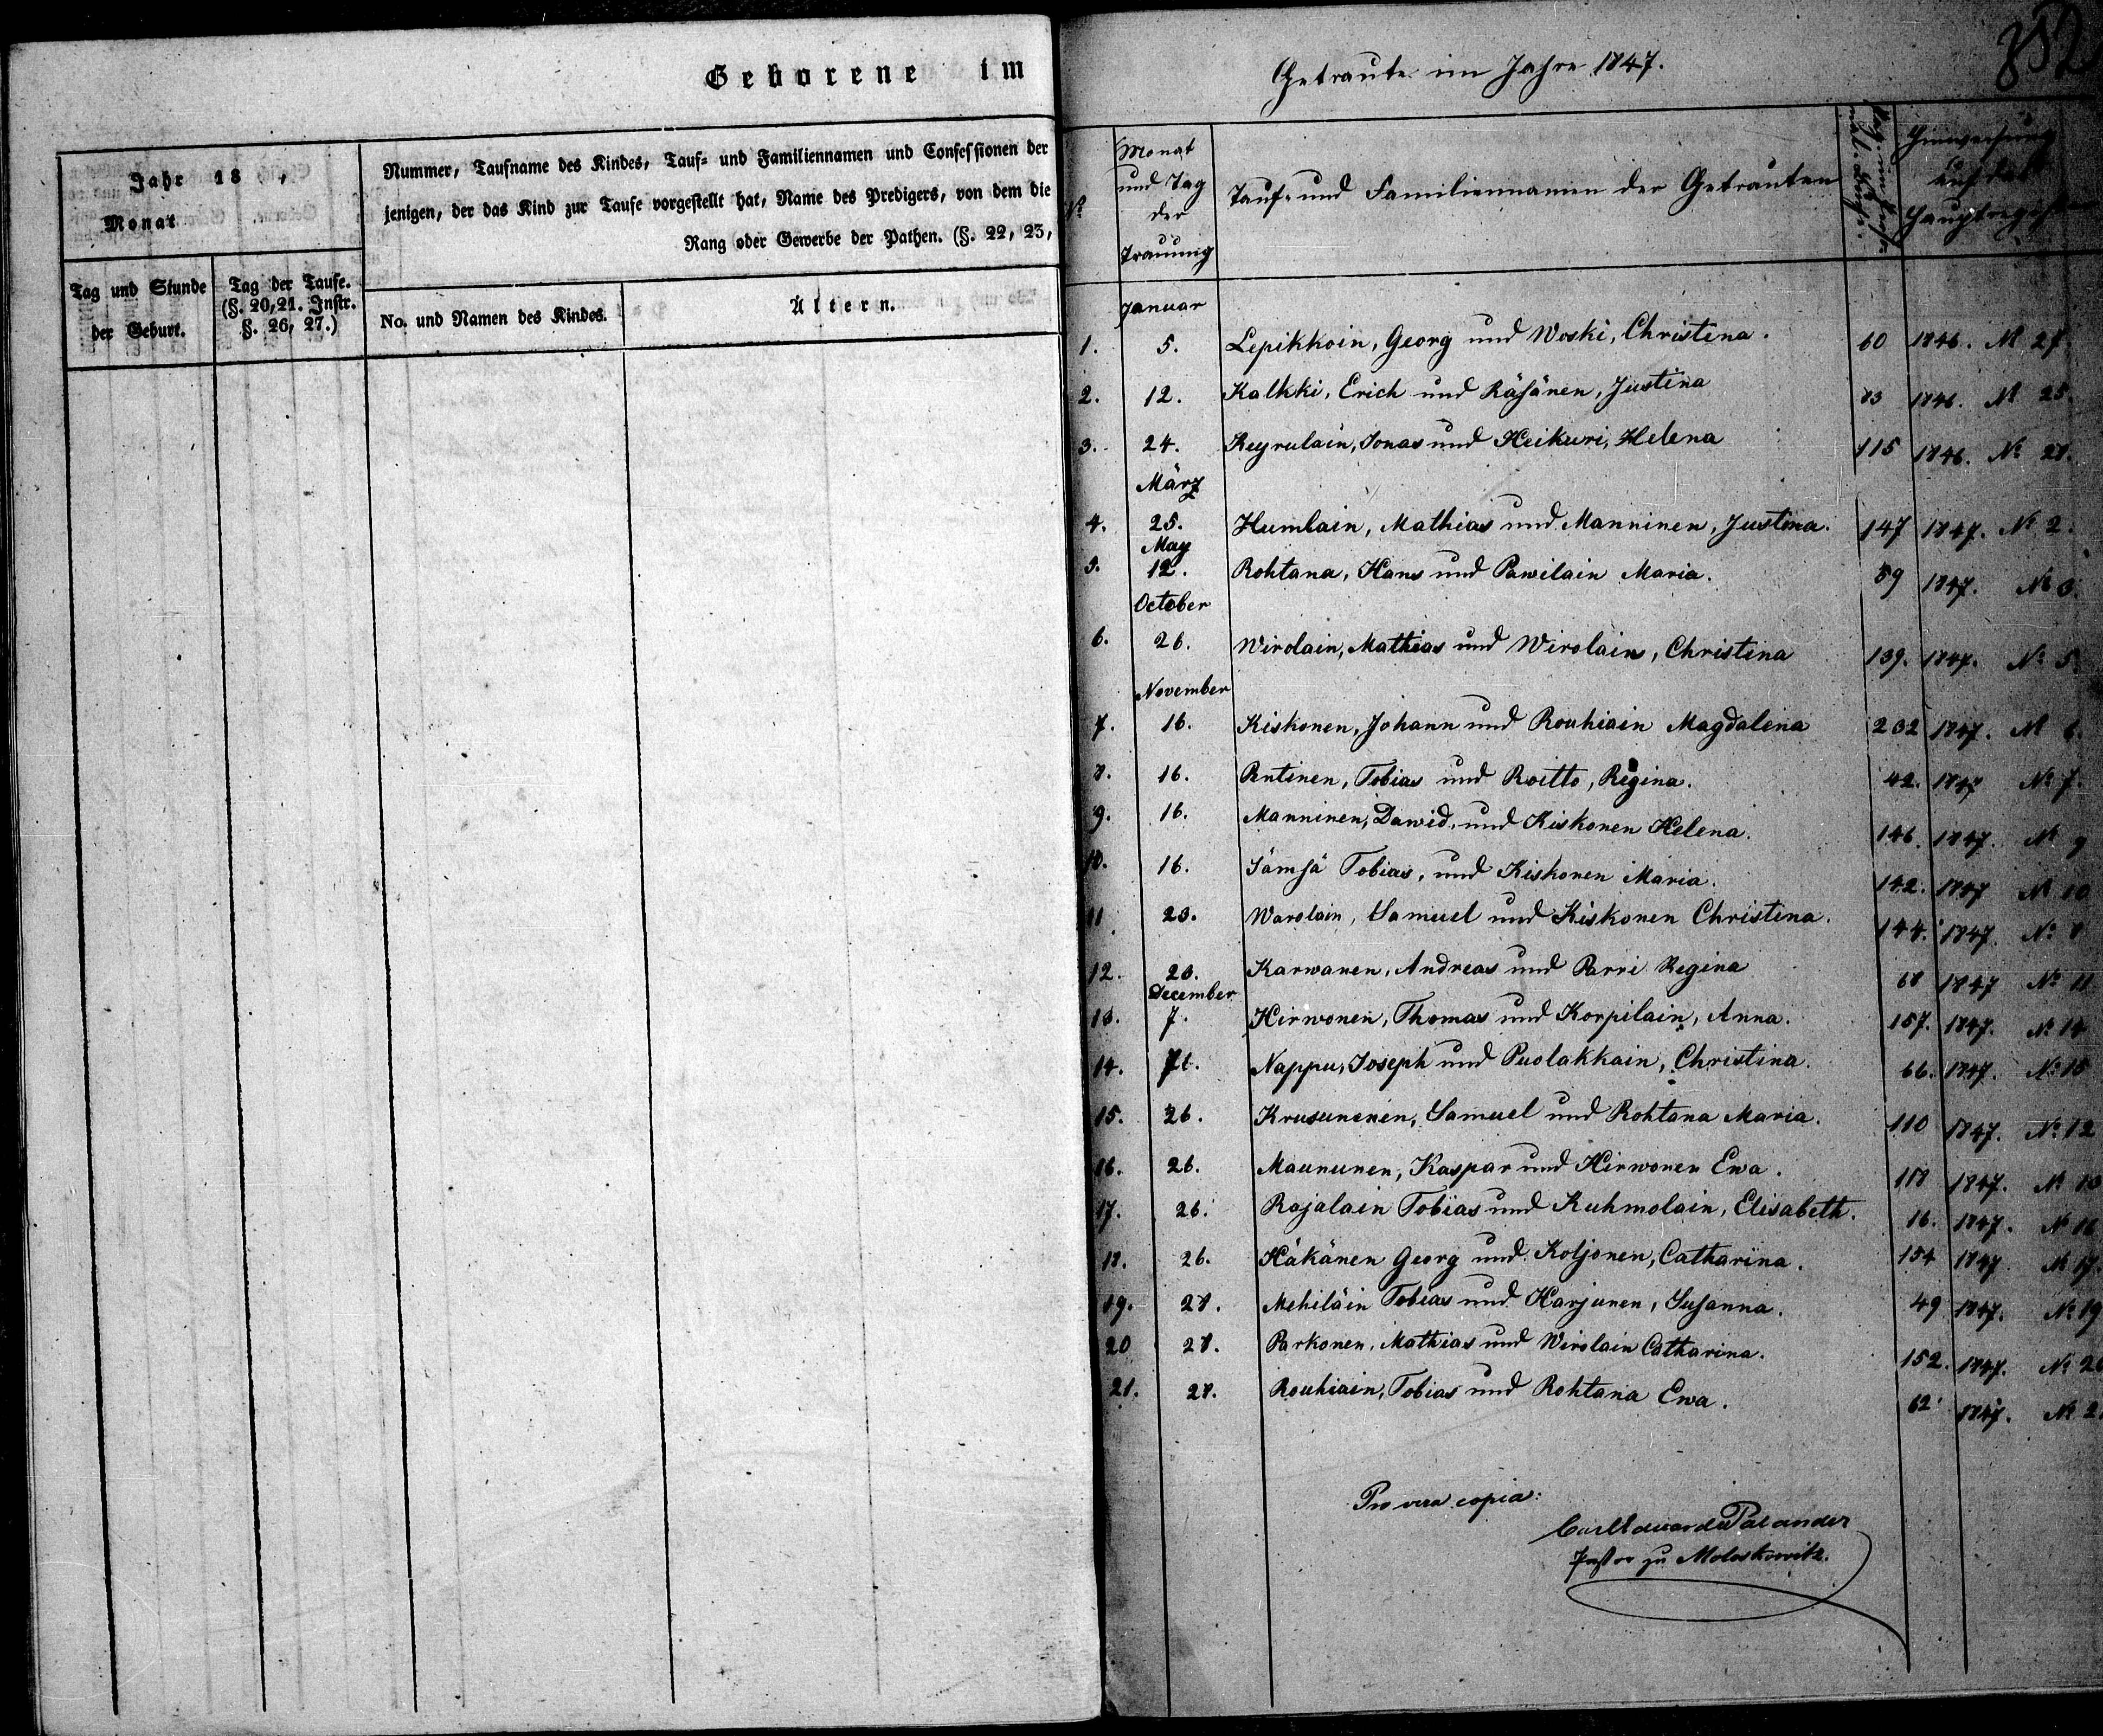 Geborene im
Jahr 18 ,
Monat
Nummer, Taufname des Kindes, Tauf- und Familiennamen und Confessionen der
jenigen, der das Kind zur Taufe vorgestellt hat, Name des Predigers, von dem die
Rang oder Gewerbe der Pathen. (§. 22, 23,
Tag und Stunde
der Geburt.
Tag der Taufe.
(§. 20, 21. Instr.
§. 26, 27.)
No. und Namen des Kindes.
Ältern.
852
Getraute im Jahre 1847.
No
Monat
und Tag
der
Trauung
Tauf- und Familiennamen der Getrauten
Hinweisung
auf das
Hauptregister
Januar
1. 5. Lepikkoin, Georg und Woski, Christina. 60 1846. No 27
2. 12. Kalkki, Erich und Räsänen, Justina 83 1846. No 25.
3. 24. Keyrulain, Jonas und Heikuri, Helena 115 1846. No 28.
März
4. 25. Humlain, Mathias und Manninen, Justina. 147 1847. No 2.
May
5. 12. Rohtana, Hans und Pawilain Maria. 59 1847. No 3.
October
6. 26. Wirolain, Mathias und Wirolain, Christina 139. 1847. No 5.
November
7. 16. Kiskonen, Johann und Rouhiain Magdalena 232 1847. No 6.
8. 16. Pentinen, Tobias und Roitto, Regina. 42. 1847 No 7.
9. 16. Manninen, Dawid, und Kiskonen Helena. 146. 1847. No 9
10. 16. Sämsä Tobias, und Kiskonen Maria. 142. 1847 No 10
11 23. Warolain, Samuel und Kiskonen Christina. 144. 1847. No 8
12. 23. Karwanen, Andreas und Parri Regina 68 1847 No 11
December
13. 7. Hirwonen, Thomas und Korpilain, Anna. 157. 1847. No 14
14. 21. Nappu, Joseph und Puolakkain, Christina. 66. 1847. No 15
15. 26. Krusunenen, Samuel und Rohtana Maria. 110 1847. No 12
16. 26. Maununen, Kaspar und Hirwonen Ewa. 118 1847. No 13
17. 26. Rajalain Tobias und Kuhmolain, Elisabeth. 16. 1847. No 16
18. 26. Häkänen Georg und Koljonen, Catharina. 154 1847 No 17.
19. 28. Mehiläin Tobias und Harjunen, Susanna. 49 1847. No 19
20 28. Parkonen, Mathias und Wirolain Catharina. 152. 1847. No 20
21. 28. Rouhiain, Tobias und Rohtana Ewa. 62 1847. No 2
Pro vera copia:
Carl Eduard Palander
Pastor zu Moloskowitz.